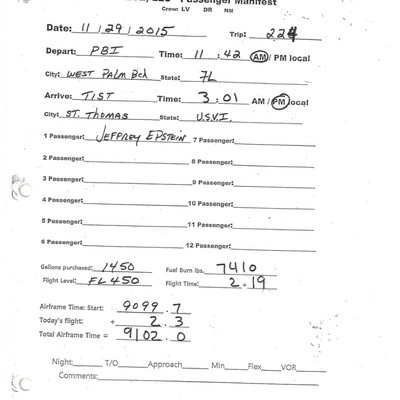 Passenger Manifest
Crew: LV DR NM
Date: 11/29/2015 Trip: 224
Depart: PBI Time: 11:42 AM / PM local
City: WEST PALM BCH State: FL
Arrive: TIST Time: 3:01 AM / PM local
City: ST. THOMAS State: U.S.V.I.
1 Passenger: JEFFREY EPSTEIN 7 Passenger:
2 Passenger: 8 Passenger:
3 Passenger: 9 Passenger:
4 Passenger: 10 Passenger:
5 Passenger: 11 Passenger:
6 Passenger: 12 Passenger:
Gallons purchased: 1450 Fuel Burn lbs. 7410
Flight Level: FL450 Flight Time: 2+19
Airframe Time: Start: 9099.7
Today's flight: + 2.3
Total Airframe Time = 9102.0
Night: T/O Approach Min Flex VOR
Comments: